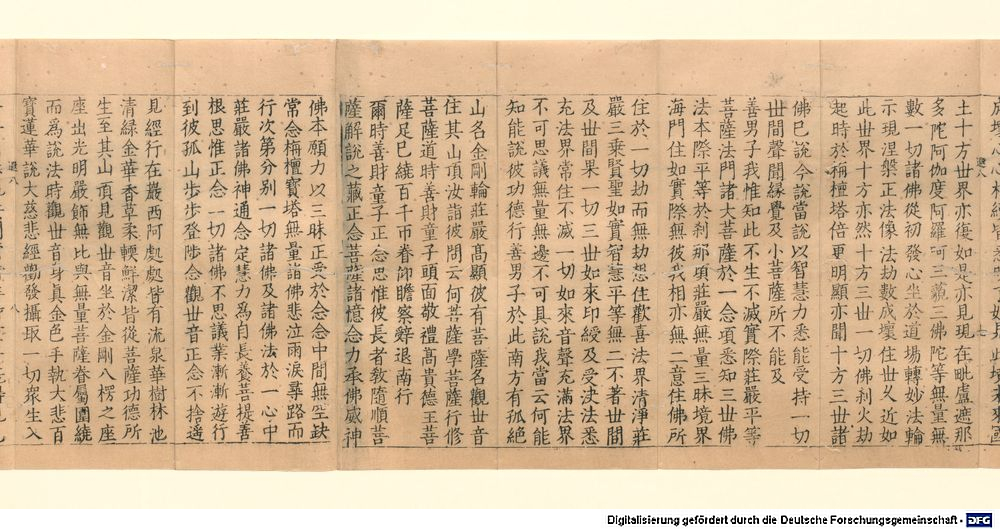 土十方世界亦復如是亦見現在毗盧遮那
多陀阿伽度阿羅訶三藐三佛陀等無量無
數一切諸佛從初發心坐於道場轉妙法輪
示現涅槃正法像法劫數成壞住世久近如
此世界十方亦然十方三世一切佛刹火劫
起時於栴檀塔倍更明顯亦聞十方三世諸
佛已說今說當說以智慧力悉能受持一切
世間聲聞緣覺及小菩薩所不能及
善男子我惟知此不生不滅實際莊嚴平等
菩薩法門諸大菩薩於一念頃悉知三世佛
法本際平等於刹那頃莊嚴無量三昧境界
海門住如實際無彼我相亦無二意住佛所
住於一切劫而無劫想住歡喜法界清淨莊
嚴三乘賢聖如實智慧平等無二不著世間
及世間果一切三世如來印綬及受決法悉
充法界常住不滅一切如來音聲充滿法界
不可思議無量無邊不可具說我當云何能
知能說彼功德行善男子於此南方有孤絕
山名金剛輪莊嚴高顯彼有菩薩名觀世音
住其山頂汝詣彼問云何菩薩學菩薩行修
菩薩道時善財童子頭面敬禮高貴德王菩
薩足已繞百千帀眷仰瞻察辭退南行
爾時善財童子正念思惟彼長者教隨順菩
薩解說之藏正念菩薩諸憶念力承佛威神
佛本願力以三昧正受於念念中間無空缺
常念栴檀寶塔無量諸佛悲泣雨淚尋路而
行次第分別一切諸佛及諸佛法於一心中
莊嚴諸佛神通念定慧力為自長養菩提善
根思惟正念一切諸佛不思議業漸漸遊行
到彼孤山步步登陟念觀世音正念不捨遙
見經行在巖西阿處處皆有流泉華樹林池
清綠金華香草柔輭鮮潔皆從菩薩功德所
生至其山頂見觀世音坐於金剛八楞之座
座出光明嚴飾無比與無量菩薩眷屬圍繞
而為說法時觀世音身真金色手執大悲百
寶蓮華說大慈悲經勸發攝取一切眾生入
Digitalisierung gefördert durch die Deutsche Forschungsgemeinschaft -
DFG